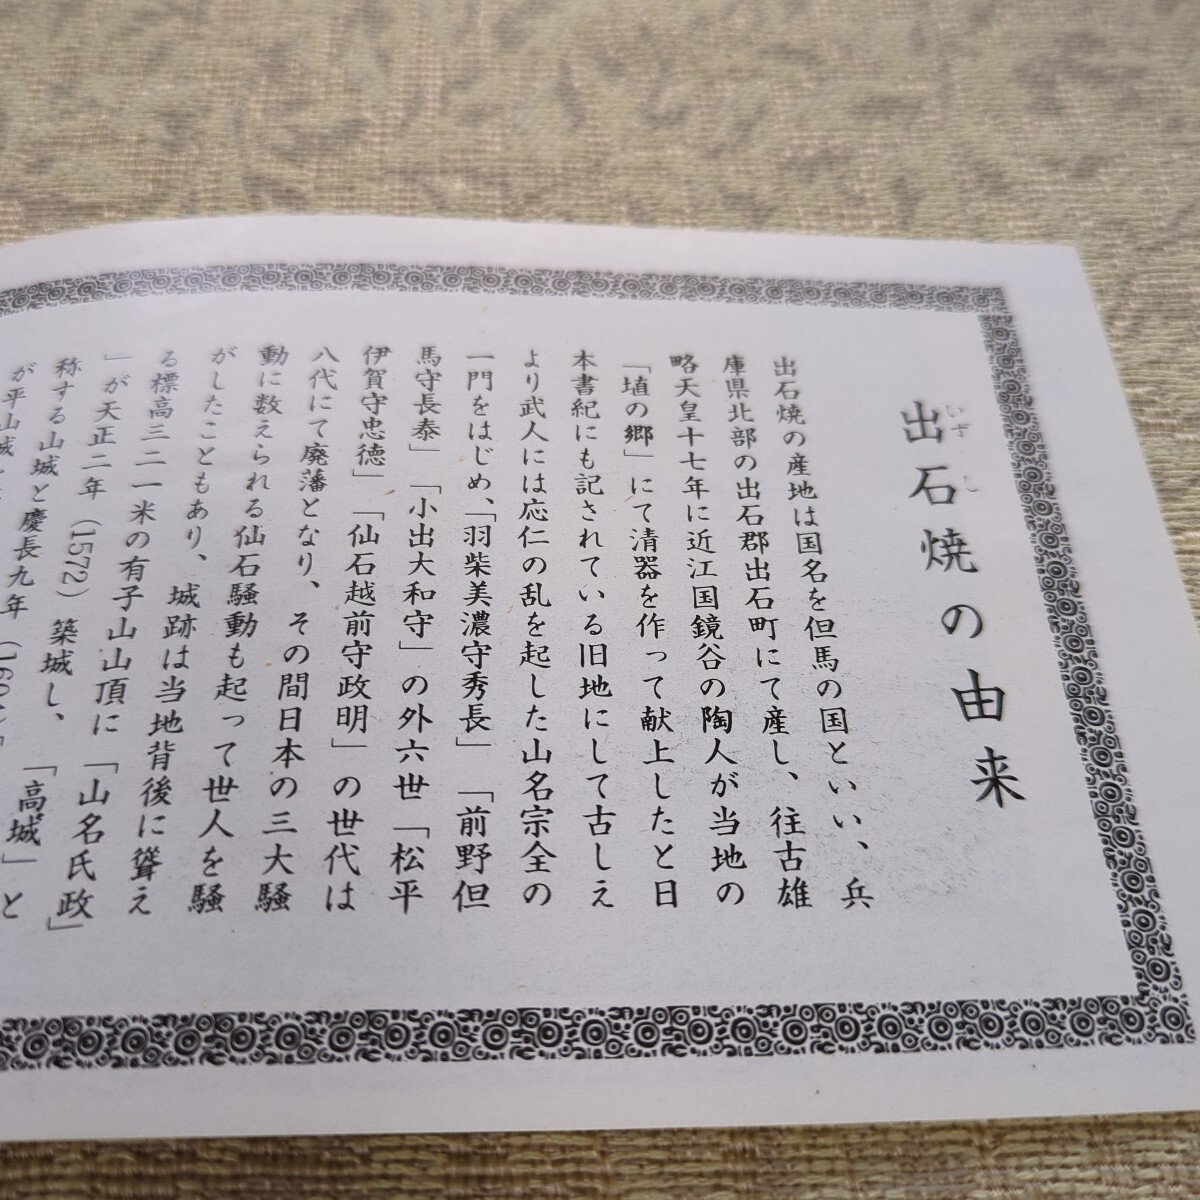 出石焼の由来
いずし
出石焼の産地は国名を但馬の国といい、兵
庫県北部の出石郡出石町にて産し、往古雄
略天皇十七年に近江国鏡谷の陶人が当地の
「埴の郷」にて清器を作って献上したと日
本書紀にも記されている旧地にして古しえ
より武人には応仁の乱を起した山名宗全の
一門をはじめ、「羽柴美濃守秀長」「前野但
馬守長泰」「小出大和守」の外六世「松平
伊賀守忠徳」「仙石越前守政明」の世代は
八代にて廃藩となり、その間日本の三大騒
動に数えられる仙石騒動も起って世人を騒
がしたこともあり、城跡は当地背後に聳え
る標高三二一米の有子山山頂に「山名氏政
」が天正二年（1572）築城し、「高城」と
称する山城と慶長九年
が平山城